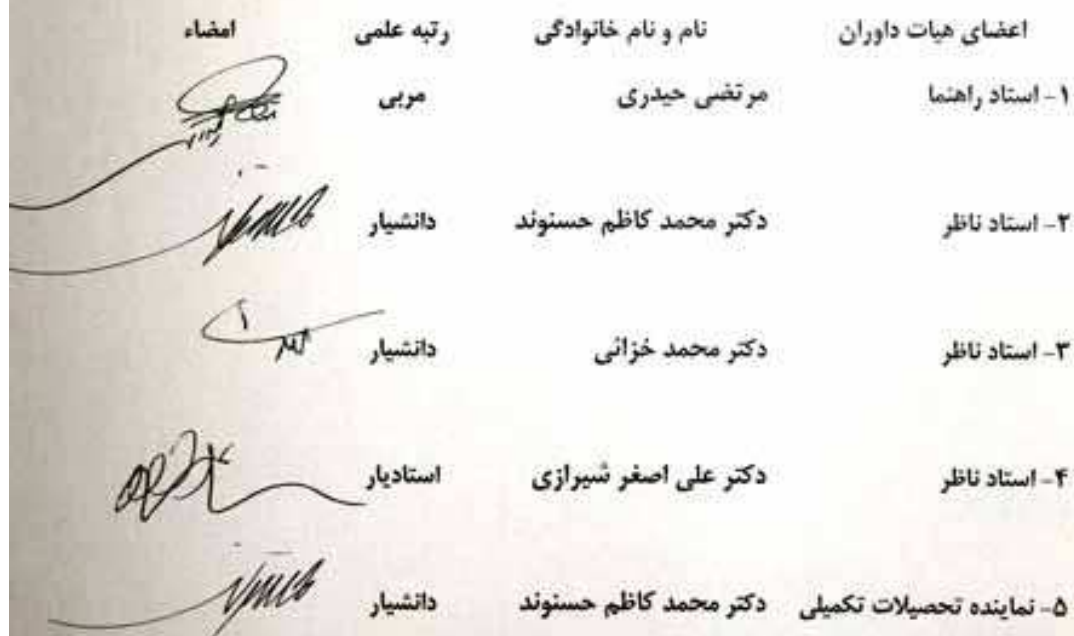 اعضای هیات داوران نام و نام خانوادگی رتبه علمی امضاء
۱- استاد راهنما مرتضی حیدری مربی
۲- استاد ناظر دکتر محمد کاظم حسنوند دانشیار
۳- استاد ناظر دکتر محمد خزائی دانشیار
۴- استاد ناظر دکتر علی اصغر شیرازی استادیار
۵- نماینده تحصیلات تکمیلی دکتر محمد کاظم حسنوند دانشیار